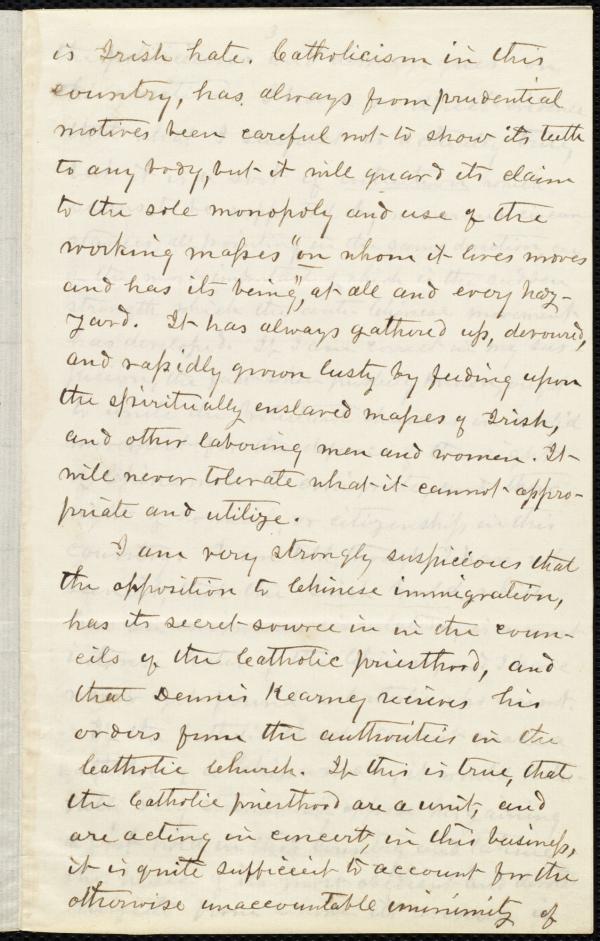 is Irish hate. Catholicism in this
country, has always from prudential
motives been careful not to show its teeth
to any body, but it will guard its claim
to the sole monopoly and use of the
working masses "on whom it lives moves
and has its being", at all and every haz-
zard. It has always gathered up, devoured,
and rapidly grown lusty by feeding upon
the spiritually enslaved masses of Irish,
and other laboring men and women. It
will never tolerate what it cannot appro-
priate and utilize.
I am very strongly suspicious that
the opposition to Chinese immigration,
has its secret source in in the coun-
cils of the Catholic priesthood, and
that Dennis Kearney recieves his
orders from the authorities in the
Catholic Church. If this is true, that
the Catholic priesthood are a unit, and
are acting in concert, in this business,
it is quite sufficient to account for the
otherwise unaccountable unimity of